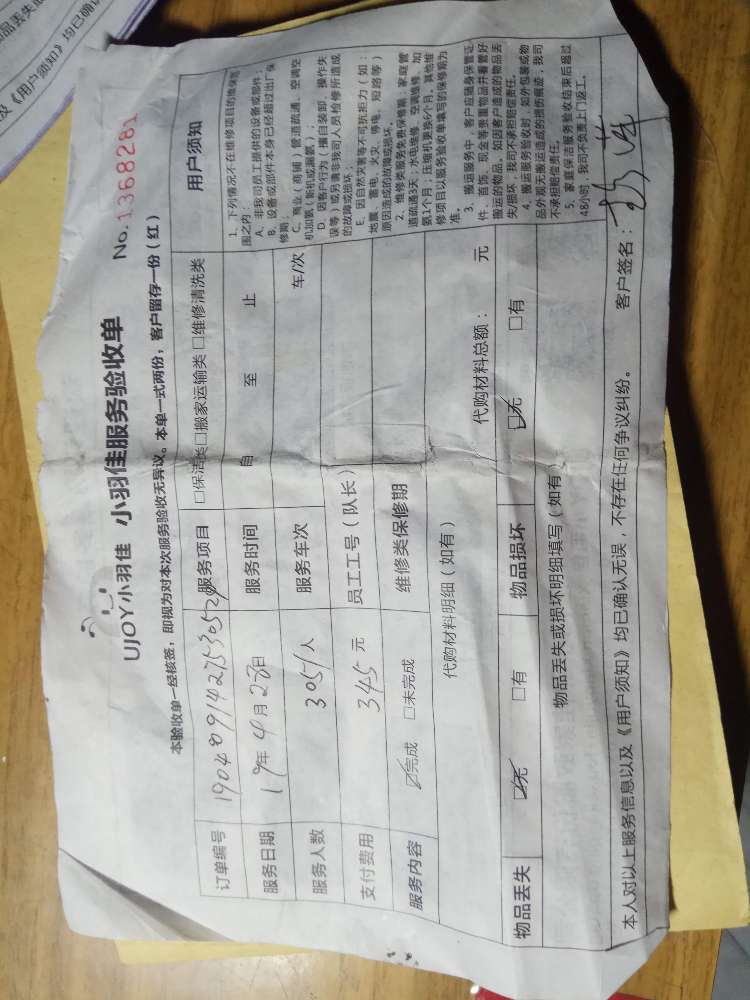 UJOY小羽佳 小羽佳服务验收单
No. 1368281
本验收单一经核签，即视为对本次服务验收无异议。本单一式两份，客户留存一份（红）
订单编号
服务项目 □保洁类□搬家运输类□维修清洗类
服务日期 19年4月28日 服务时间 自 至 止
服务人数 人 服务车次 车/次
支付费用 345元 员工工号（队长）
服务内容 ☑完成 □未完成 维修类保修期
代购材料明细（如有） 代购材料总额： 元
物品丢失 ☑无 □有 物品损坏 ☑无 □有
物品丢失或损坏明细填写（如有
本人对以上服务信息以及《用户须知》均已确认无误，不存在任何争议纠纷。 客户签名：
用户须知
1、下列情况不在维修项目的维保范
围之内：
A、非我司员工提供的设备或部件；
B、设备或部件本身已经超过出厂保
修期；
C、商业（商铺）管道疏通，空调空
机加氨（新机或漏氨）；
D、因客户行为（擅自装卸、操作失
误等）或另请非我司人员检修所造成
的故障或损坏。
E、因自然灾害等不可抗拒力（如：
地震、雷电、火灾、停电、短路等）
原因造成的故障或损坏。
2、维修类服务免费保修期，家庭管
道疏通3天；水电维修、空调维修、加
氨1个月；压缩机更换6个月。其他维
修项目以服务验收单填写的保修期为
准。
3、搬运服务中，客户应随身保管证
件、首饰、现金等贵重物品并看管好
搬运的物品。如因客户造成的物品丢
失/损坏，我司不承担赔偿责任。
4、搬运服务验收时，如外包装或物
品外观无搬运造成的损伤痕迹，我司
不承担赔偿责任。
5、家庭保洁服务验收结束后超过
48小时，我司不负责上门返工。
《用户须知》均已确